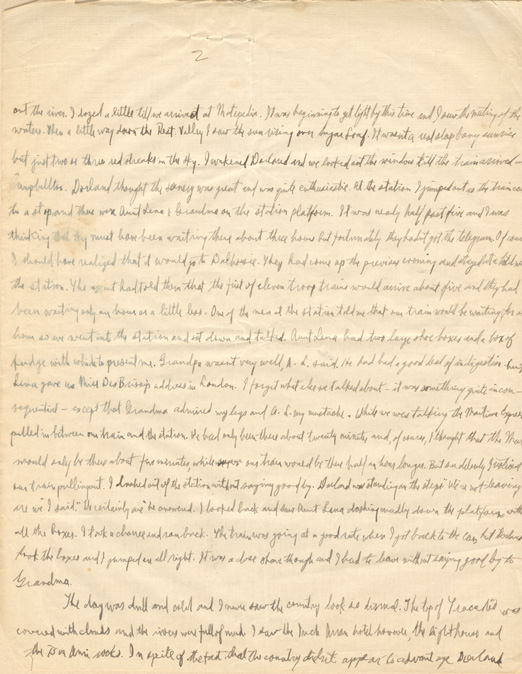 2
out the river. I dozed a little till we arrived at Matapedia. It was beginning to get light by this time and I saw the meeting of the
waters. Then a little way down the Rest. Valley I saw the sun rising over Sugar Loaf. It wasn't a real slap bang sunrise
but just two or three red streaks in the sky. I wakened Dorland and we looked out the window till the train arrived –
Campbellton. Dorland thought the scenery was great and was quite enthusiastic. At the station I jumped out as the train came
to a stop and there were Aunt Lena & Grandma on the station platform. It was nearly half past five and I was
thinking that they must have been waiting there about three hours but fortunately they hadn't got the telegram. Of course
I should have realized that it would go to Dalhousie. They had come up the previous evening and stayed at a hotel near
the station. The agent had told them that the first of eleven troop trains would arrive about five and they had
been waiting only an hour or a little less. One of the men at the station told me that our train would be waiting for an
hour so we went into the station and sat down and talked. Aunt Lena had two large shoe boxes and a box of
fudge with which to present me. Grandpa wasn't very well, A. L. said. He had had a good deal of indigestion. Aunt
Lena gave us Miss Des Brisay's address in London. I forget what else we talked about – it was something quite incon-
sequential – except that Grandma admired my legs and A. L. my mustache. While we was talking the Maritime Express
pulled in between our train and the station. We had only been there about twenty minutes, and, of course, I thought that the Mar.
would only be there about five minutes while our train would be there half an hour longer. But suddenly I noticed
our train pulling out. I dashed out of the station without saying good by. Dorland was standing on the steps "We're not leaving
are we" I said. "We certainly are" he answered. I looked back and saw Aunt Lena dashing madly down the platform with
all the boxes. I took a chance and ran back. The train was going at a good rate when I got back to the car, but Dorland
took the boxes and I jumped on all right. It was a close shave though and I had to leave without saying good by to
Grandma.
The day was dull and cold and I never saw the country look so dismal. The top of was
covered with clouds and the rivers were full of mud. I saw the Inch Arran hotel however the lighthouse and
the Bon Ami rocks. In spite of the fact that the country didn't appear to advantage Dorland